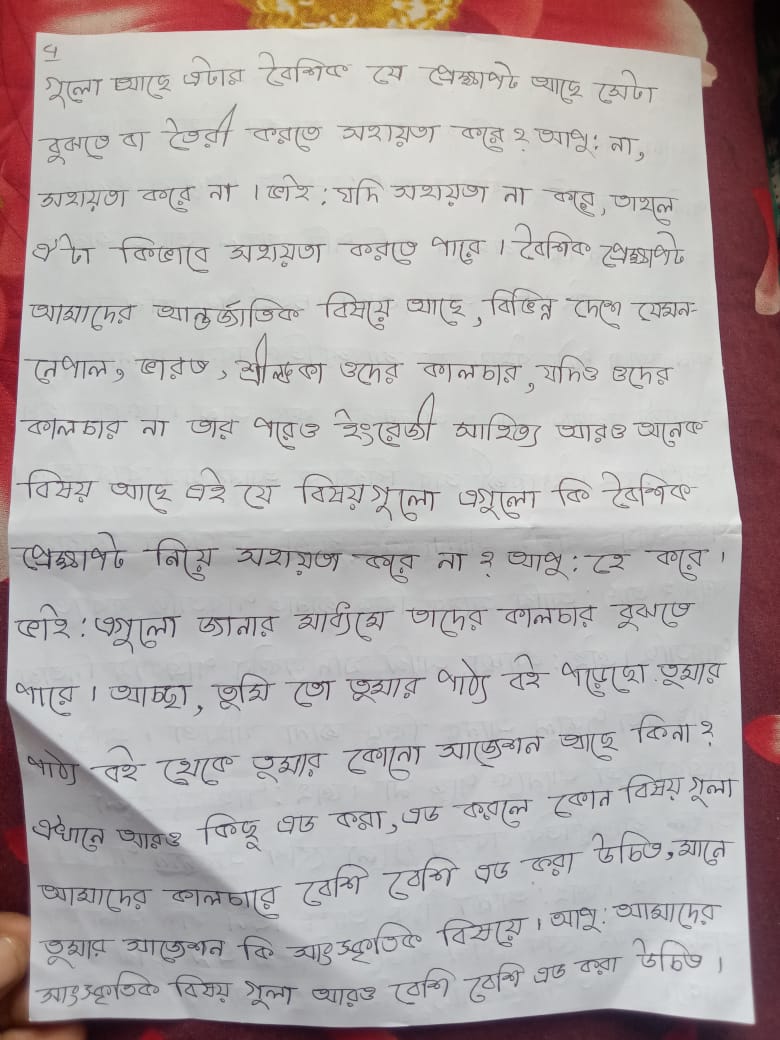 ৭
গুলো আছে এটার বৈশিক যে প্রেক্ষাপট আছে সেটা
বুঝতে বা তৈরী করতে সহায়তা করে? আপু: না,
সহায়তা করে না। ভাই: যদি সহায়তা না করে, তাহলে
ঐটা কিভাবে সহায়তা করতে পারে। বৈশিক প্রেক্ষাপট
আমাদের আন্তর্জাতিক বিষয়ে আছে, বিভিন্ন দেশে যেমন-
নেপাল, ভারত, শ্রীলঙ্কা ওদের কালচার, যদিও ওদের
কালচার না তার পরেও ইংরেজী সাহিত্য আরও অনেক
বিষয় আছে এই যে বিষয়গুলো এগুলো কি বৈশিক
প্রেক্ষাপট নিয়ে সহায়তা করে না? আপু: হে করে।
ভাই: এগুলো জানার মাধ্যমে তাদের কালচার বুঝতে
পারে। আচ্ছা, তুমি তো তুমার পাঠ্য বই পড়েছো তুমার
পাঠ্য বই থেকে তুমার কোনো সাজেশন আছে কিনা?
এখানে আরও কিছু এড করা, এড করলে কোন বিষয় গুলা
আমাদের কালচারে বেশি বেশি এড করা উচিত, মানে
তুমার সাজেশন কি সাংস্কৃতিক বিষয়ে। আপু: আমাদের
সাংস্কৃতিক বিষয় গুলা আরও বেশি বেশি এড করা উচিত।